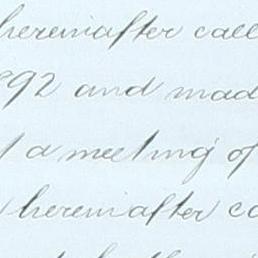 hereinafter call
892 and mad
a meeting of
hereinafter ca